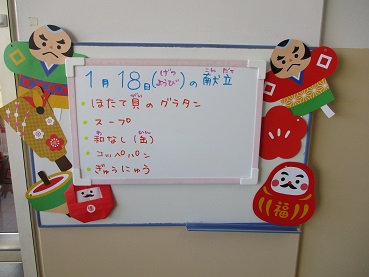 1月18日(げつようび)の献立こんだて
ほたて貝がいのグラタン
スープ
和わなし(缶かん)
コッペパン
ぎゅうにゅう
福